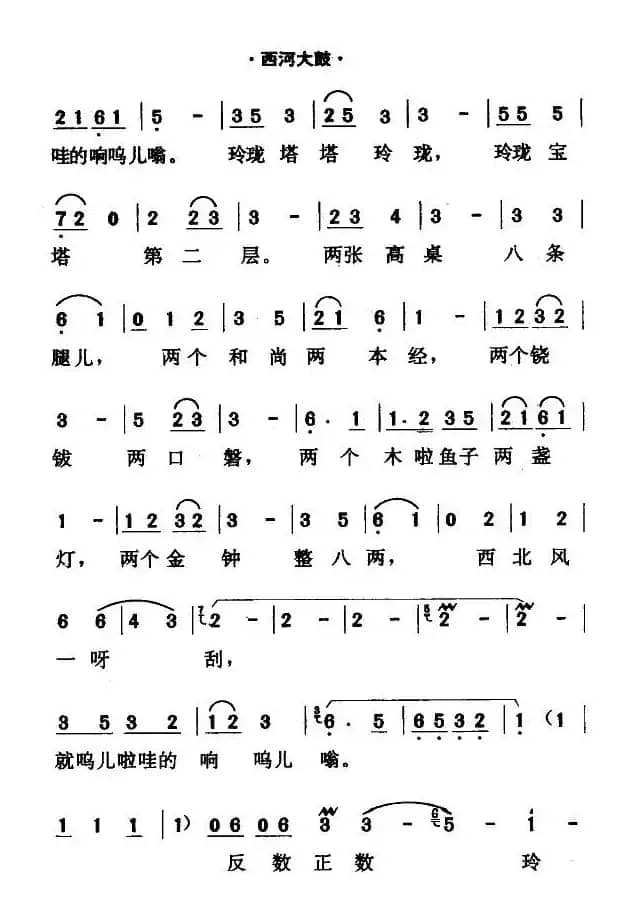 ·西河大鼓·
2161 | 5 - | 35 3 | 25 3 | 3 - | 55 5 |
哇的响呜儿嗡。玲珑塔塔玲珑，玲珑宝
72 0 | 2 23 | 3 - | 23 4 | 3 - | 3 3 |
塔第二层。两张高桌八条
6 1 | 0 1 2 | 3 5 | 21 6 | 1 - | 1232 |
腿儿，两个和尚两本经，两个铙
3 - | 5 23 | 3 - | 6· 1 | 1·2 35 | 2161 |
钹两口磬，两个木啦鱼子两盏
1 - | 12 32 | 3 - | 3 5 | 6 1 | 0 2 | 1 2 |
灯，两个金钟整八两，西北风
6 6 | 4 3 | 2 - | 2 - | 2 - | 2 - | 2 - |
一呀刮，
35 32 | 12 3 | 6· 5 | 6532 | 1 (1 |
就呜儿啦哇的响呜儿嗡。
1 1 1 | 1) 06 06 3 3 - 5 - 1 -
反数正数玲